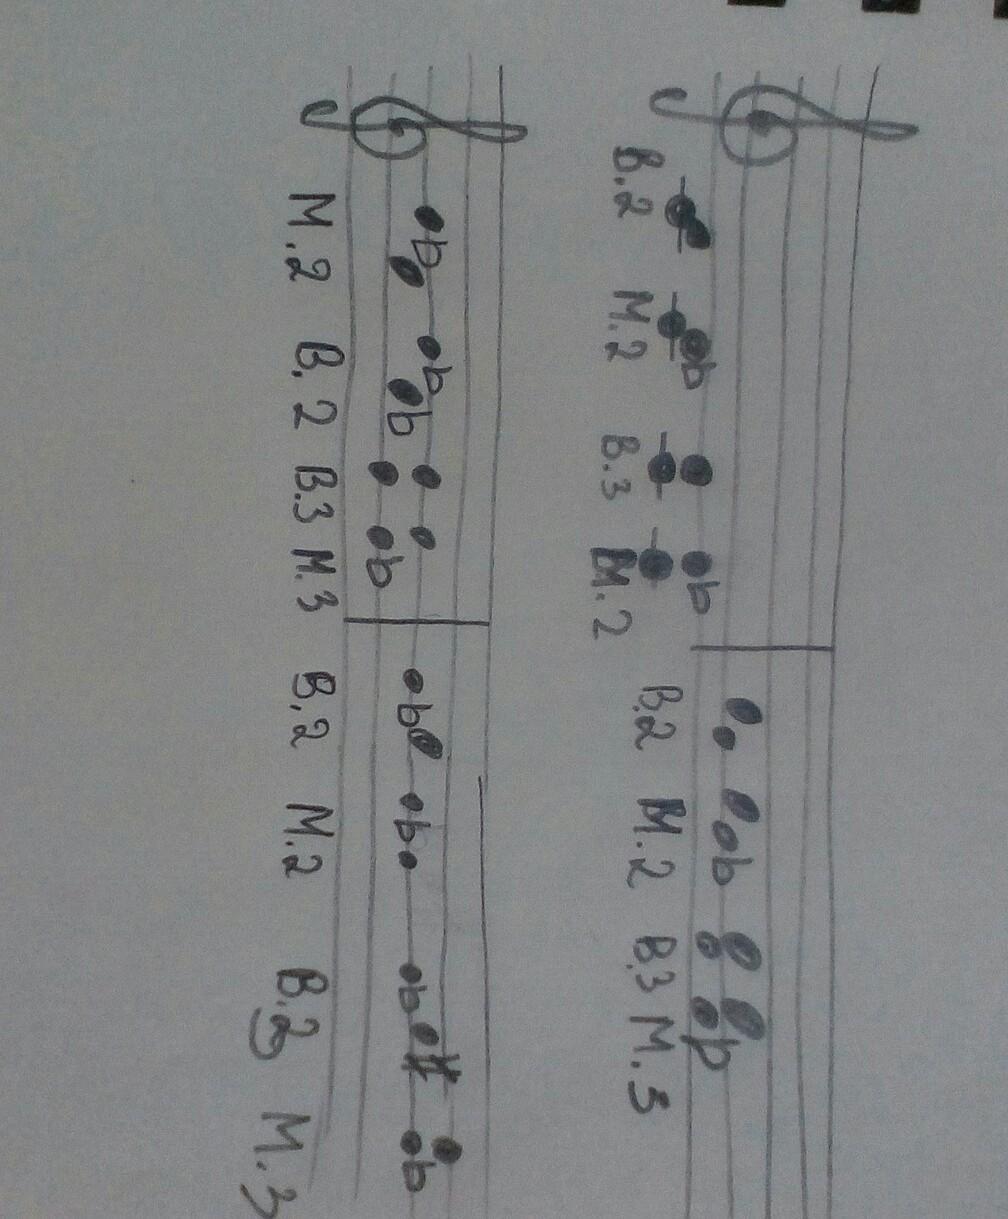 В.2 М.2 В.3 М.2 В.2 М.2 В.3 М.3
М.2 В.2 В.3 М.3 В.2 М.2 М.3